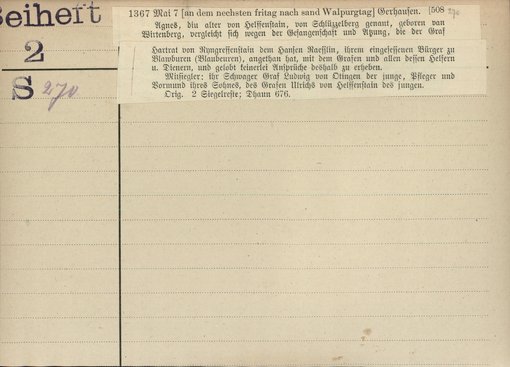 Beiheft
2
S 270
1367 Mai 7 [an dem nechsten fritag nach sand Walpurgtag] Gerhausen. [508 270
Agnes, diu alter von Helffenstain, von Schlüzelberg genant, geboren van
Wirtenberg, vergleicht sich wegen der Gefangenschaft und Atzung, die der Graf
Hartrat von Rungreffenstain dem Hansen Raesslin, ihrem eingesessenen Bürger zu
Blawburen (Blaubeuren), angethan hat, mit dem Grafen und allen dessen Helfern
u. Dienern, und gelobt keinerlei Ansprüche deshalb zu erheben.
Mitsiegler: ihr Schwager Graf Ludwig von Otingen der junge, Pfleger und
Vormund ihres Sohnes, des Grafen Ulrichs von Helffenstain des jungen.
Orig. 2 Siegelreste; Dhaun 676.